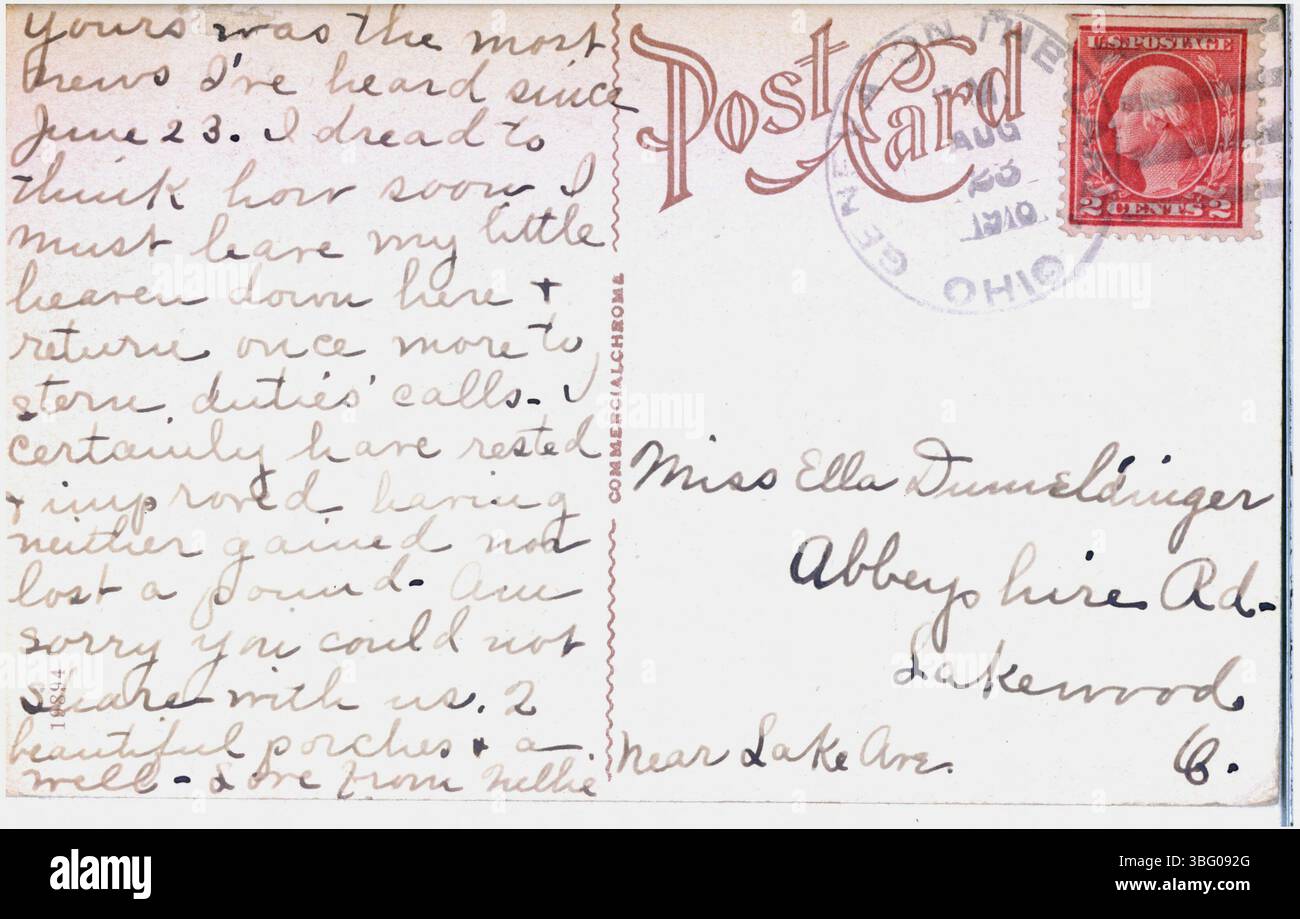 yours was the most
news I've heard since
June 23. I dread to
think how soon I
must leave my little
heaven down here +
return once more to
stern duties' calls- I
certainly have rested
+ improved having
neither gained nor
lost a pound- Am
sorry you could not
share with us. 2
beautiful porches + a
well- Love from Nellie
19894
COMMERCIALCHROME
Post Card
GENEVA ON THE
AUG
23
OHIO
U.S. POSTAGE
2 CENTS 2
Miss Ella Dumeldinger
Abbeyshire Rd-
Lakewood
Near Lake Ave.
O.
alamy
Image ID: 3BG092G
www.alamy.com